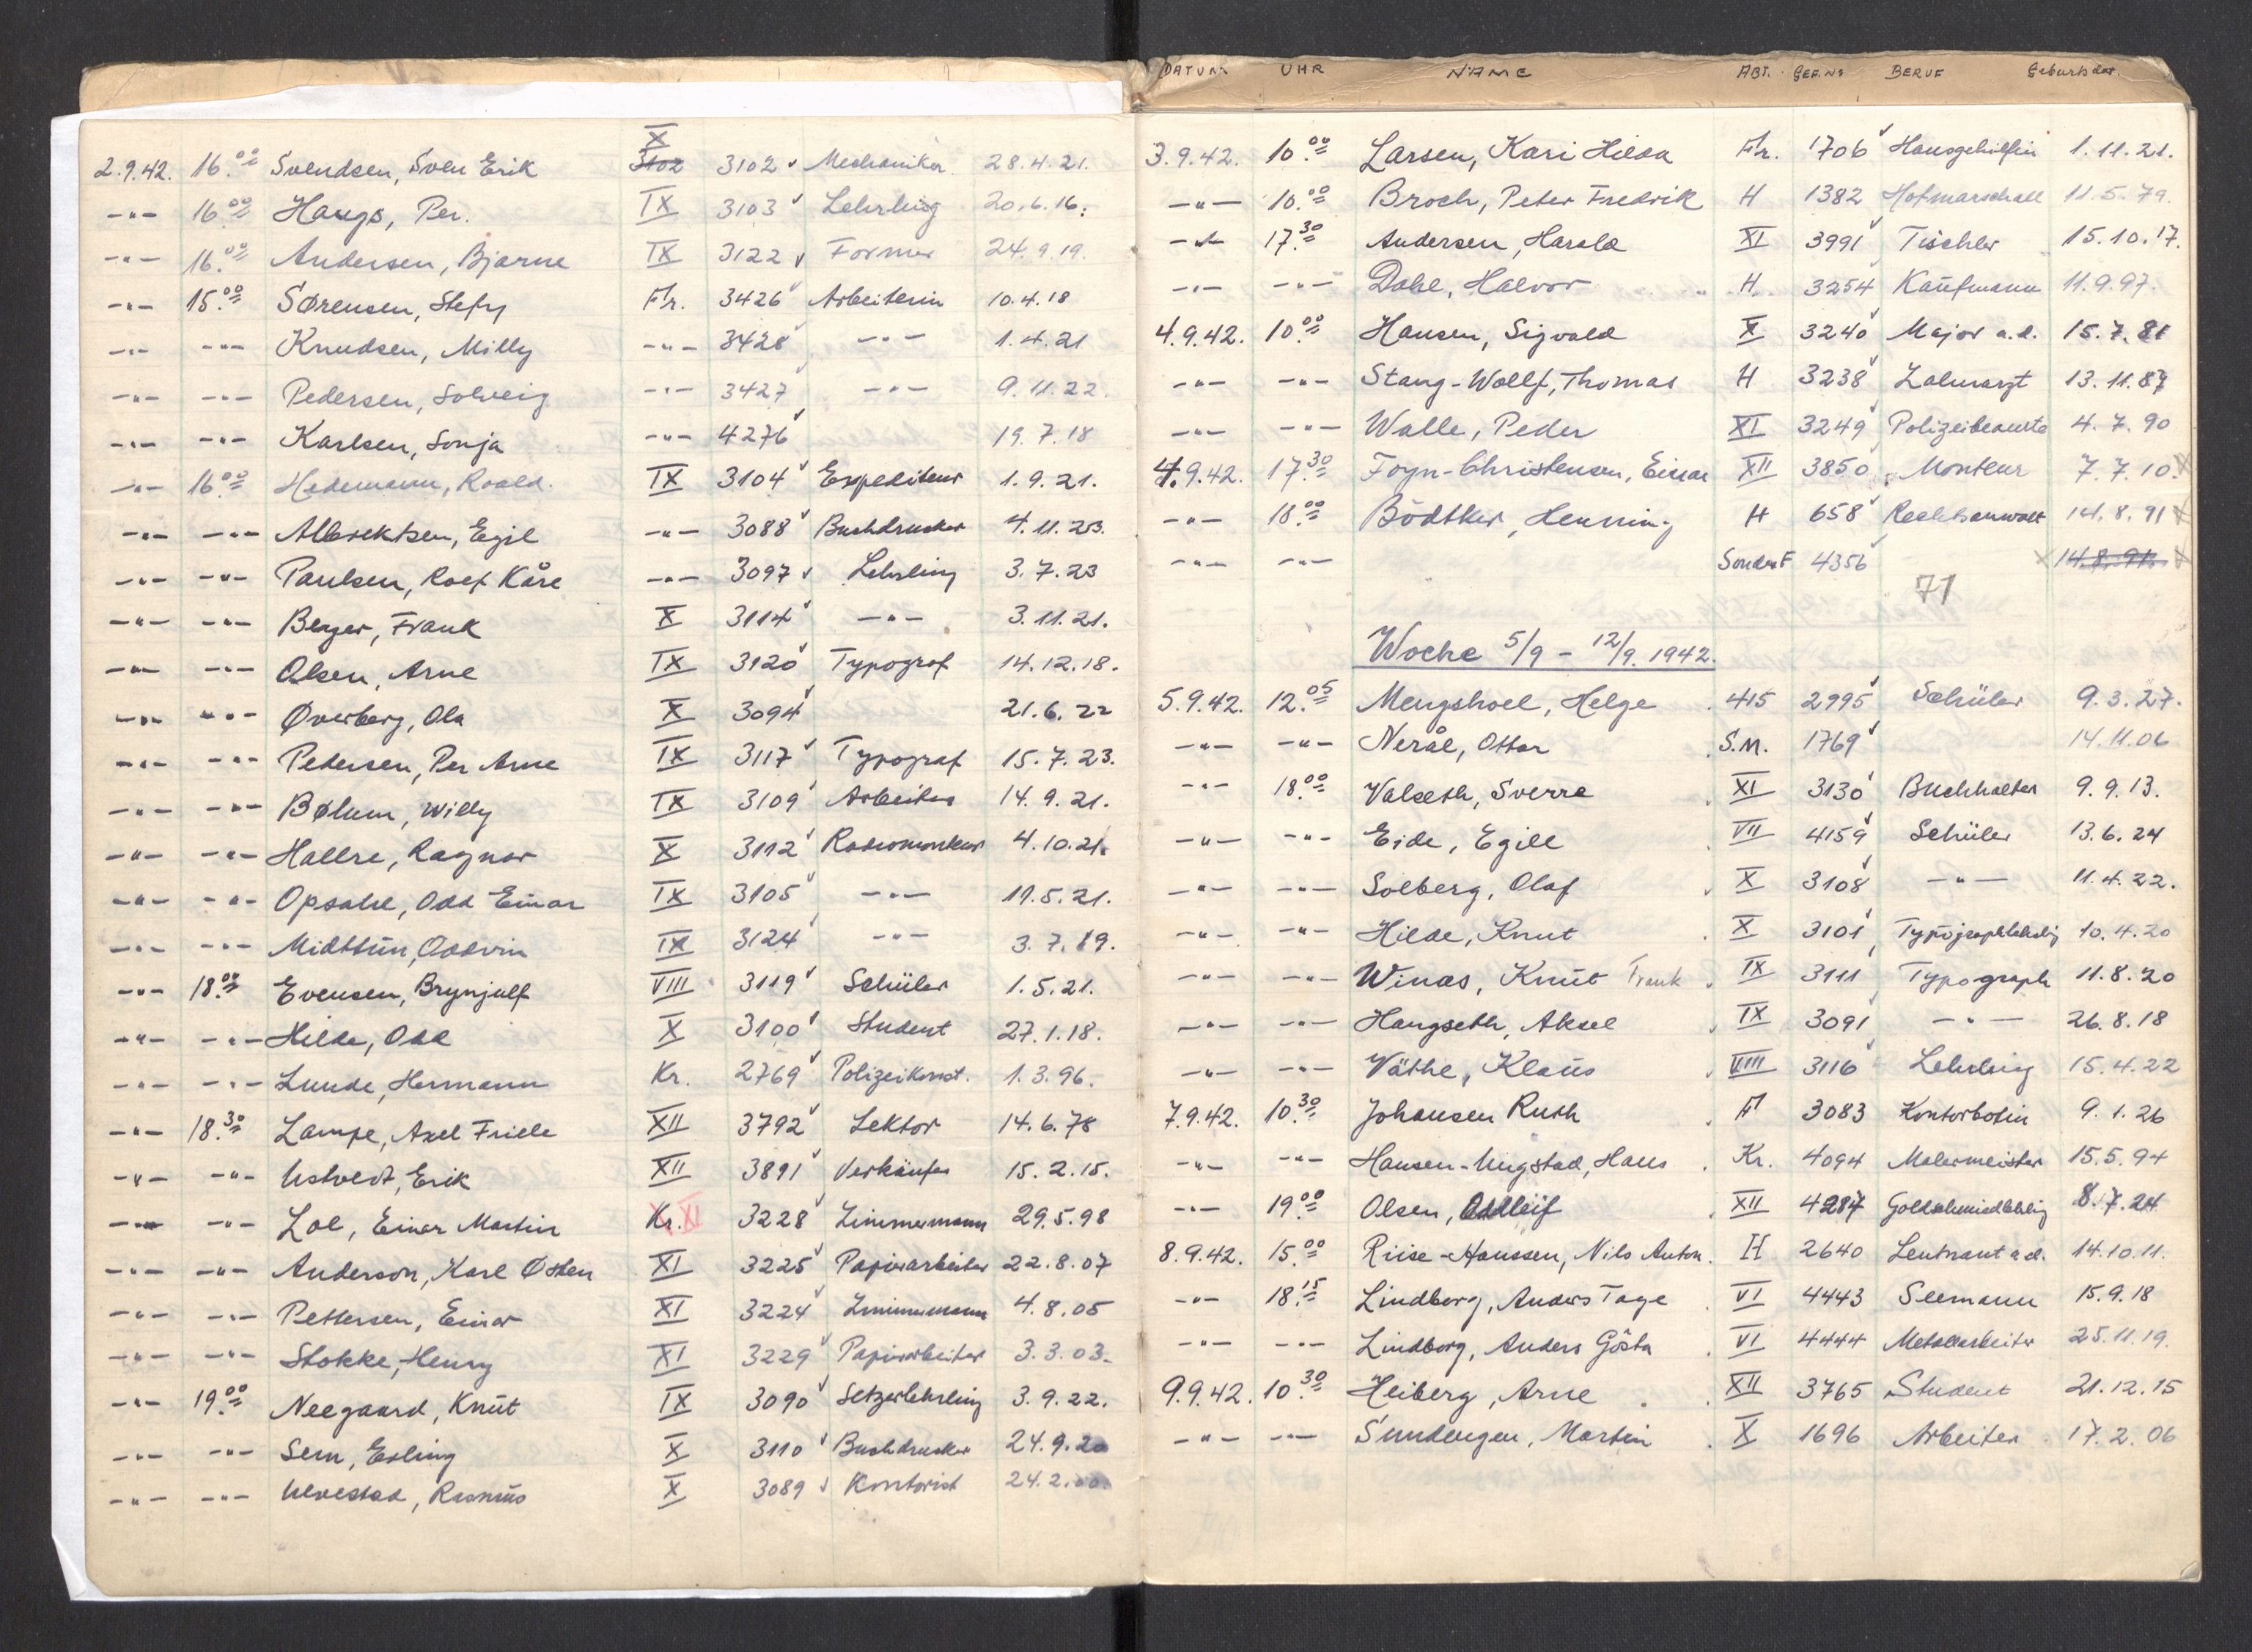 2.9.42. 16.00 Svendsen, Sven Erik X 3102 3102 ✓ Mechaniker. 28.4.21.
-"- 16.00 Haugs, Per. IX 3103 ✓ Lehrling 20.6.16.
-"- 16.00 Andersen, Bjarne IX 3122 ✓ Former 24.9.19.
-"- 15.00 Sørensen, Stefy Fr. 3426 ✓ Arbeiterin 10.4.18
-"- -"- Knudsen, Milly -"- 3428 ✓ -"- 1.4.21
-"- -"- Pedersen, Solveig -"- 3427 ✓ -"- 9.11.22.
-"- -"- Karlsen, Sonja -"- 4276 ✓ 19.7.18
-"- 16.00 Hedemann, Roald. IX 3104 ✓ Expediteur 1.9.21.
-"- -"- Albrektsen, Egil -"- 3088 ✓ Buchdrucker 4.11.23.
-"- -"- Paulsen, Rolf Kåre -"- 3097 ✓ Lehrling 3.7.23
-"- -"- Berger, Frank X 3114 ✓ -"- 3.11.21.
-"- -"- Olsen, Arne IX 3120 ✓ Typograf 14.12.18.
-"- -"- Øverberg, Ola X 3094 ✓ 21.6.22
-"- -"- Petersen, Per Arne IX 3117 ✓ Typograf 15.7.23.
-"- -"- Bølum, Willy IX 3109 ✓ Arbeiter 14.9.21.
-"- -"- Hallre, Ragnar X 3112 ✓ Radiomonteur 4.10.21.
-"- -"- Opsahl, Odd Einar IX 3105 ✓ -"- 19.5.21.
-"- -"- Midttun, Oddvin IX 3124 ✓ -"- 3.7.19.
-"- 18.00 Evensen, Brynjulf VIII 3119 ✓ Schüler 1.5.21.
-"- -"- Hilde, Odd X 3100 ✓ Student 27.1.18.
-"- -"- Lunde, Hermann Kr. 2769 ✓ Polizeikonst. 1.3.96.
-"- 18.30 Lampe, Axel Friele XII 3792 ✓ Lektor 14.6.78
-"- -"- Ustvedt, Erik XII 3891 ✓ Verkäufer 15.2.15.
-"- -"- Lol, Einar Martin Kr. XI 3228 ✓ Zimmermann 29.5.98
-"- -"- Anderson, Karl Østen XI 3225 ✓ Papierarbeiter 22.8.07
-"- -"- Pettersen, Einar XI 3224 ✓ Zimmermann 4.8.05
-"- -"- Stokke, Henry XI 3229 ✓ Papierarbeiter 3.3.03.
-"- 19.00 Neegaard, Knut IX 3090 ✓ Setzerlehrling 3.9.22.
-"- -"- Sem, Erling X 3110 ✓ Buchdrucker 24.9.20
-"- -"- Ulvestad, Rasmus X 3089 ✓ Kontorist 24.2.00.
DATUM UHR NAME ABT. GEF.No BERUF Geburtsdat.
3.9.42. 10.00 Larsen, Kari Hilda Fr. 1706 ✓ Hausgehilfin 1.11.21.
-"- 10.00 Broch, Peter Fredrik H 1382 Hofmarschall 11.5.79.
-"- 17.30 Andersen, Harald XI 3991 ✓ Tischler 15.10.17.
-"- -"- Dahl, Halvor H. 3254 ✓ Kaufmann 11.9.97.
4.9.42. 10.00 Hansen, Sigvald X 3240 ✓ Major a.d. 15.7.81
-"- -"- Stang-Wollf, Thomas H 3238 ✓ Zahnarzt 13.11.87
-"- -"- Walle, Peder XI 3249 ✓ Polizeibeamte 4.7.90
4.9.42. 17.30 Foyn-Christensen, Einar XII 3850 Monteur 7.7.10.
-"- 18.00 Bödtker, Henning H 658 ✓ Rechtsanwalt 14.8.91
-"- -"- Sonder F 4356 ✓ 14.8.91.
71
Woche 5/9 - 12/9. 1942.
5.9.42. 12.05 Mengshoel, Helge 415 2995 ✓ Schüler 9.3.27.
-"- -"- Nerål, Ottar S.M. 1769 ✓ 14.11.06
-"- 18.00 Valseth, Sverre XI 3130 ✓ Buchhalter 9.9.13.
-"- -"- Eide, Egill VII 4159 ✓ Schüler 13.6.24
-"- -"- Solberg, Olaf X 3108 ✓ -"- 11.4.22.
-"- -"- Hilde, Knut X 3101 ✓ Typographlehrling 10.4.20
-"- -"- Winas, Knut Frank IX 3111 ✓ Typograph 11.8.20
-"- -"- Haugseth, Aksel IX 3091 ✓ -"- 26.8.18
-"- -"- Väthe, Klaus VIII 3116 ✓ Lehrling 15.4.22
7.9.42. 10.30 Johansen Ruth F 3083 Kontorbotin 9.1.26
-"- -"- Hansen-Ungstad, Hans Kr. 4094 Malermeister 15.5.94
-"- 19.00 Olsen, Oddleif XII 4287 Goldschmiedlehrling 8.7.24
8.9.42. 15.00 Riise-Hanssen, Nils Anton. H 2640 Leutnant a.d. 14.10.11.
-"- 18.15 Lindberg, Anders Tage VI 4443 Seemann 15.9.18
-"- -"- Lindborg, Anders Gösta VI 4444 Metallarbeiter 25.11.19.
9.9.42. 10.30 Heiberg, Arne XII 3765 Student 21.12.15
-"- -"- Sundengen, Martin X 1696 Arbeiter 17.2.06